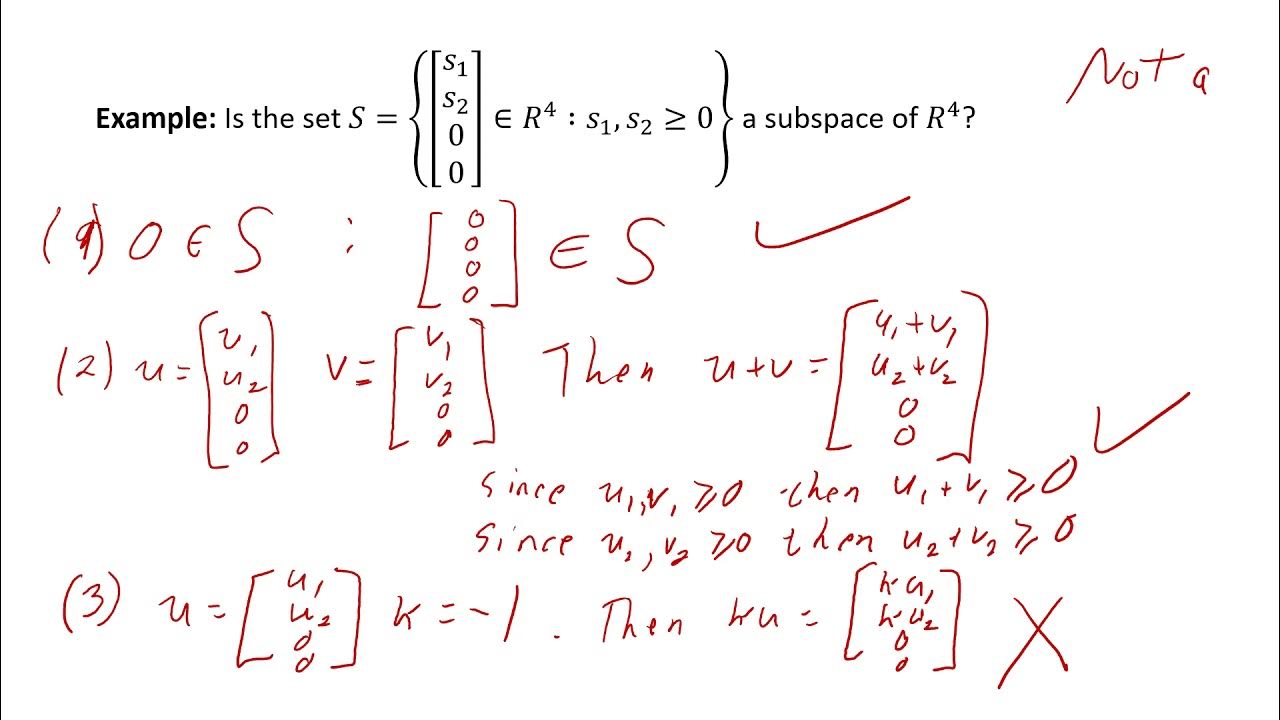 Example: Is the set S = { [s₁ s₂ 0 0] ∈ R⁴ : s₁, s₂ ≥ 0 } a subspace of R⁴?
Not a
(1) 0 ∈ S : [0 0 0 0] ∈ S ✓
(2) u = [u₁ u₂ 0 0] v = [v₁ v₂ 0 0] Then u+v = [u₁+v₁ u₂+v₂ 0 0] ✓
since u₁,v₁ ≥ 0 then u₁+v₁ ≥ 0
since u₂,v₂ ≥ 0 then u₂+v₂ ≥ 0
(3) u = [u₁ u₂ 0 0] k = -1. Then ku = [ku₁ ku₂ 0 0] X